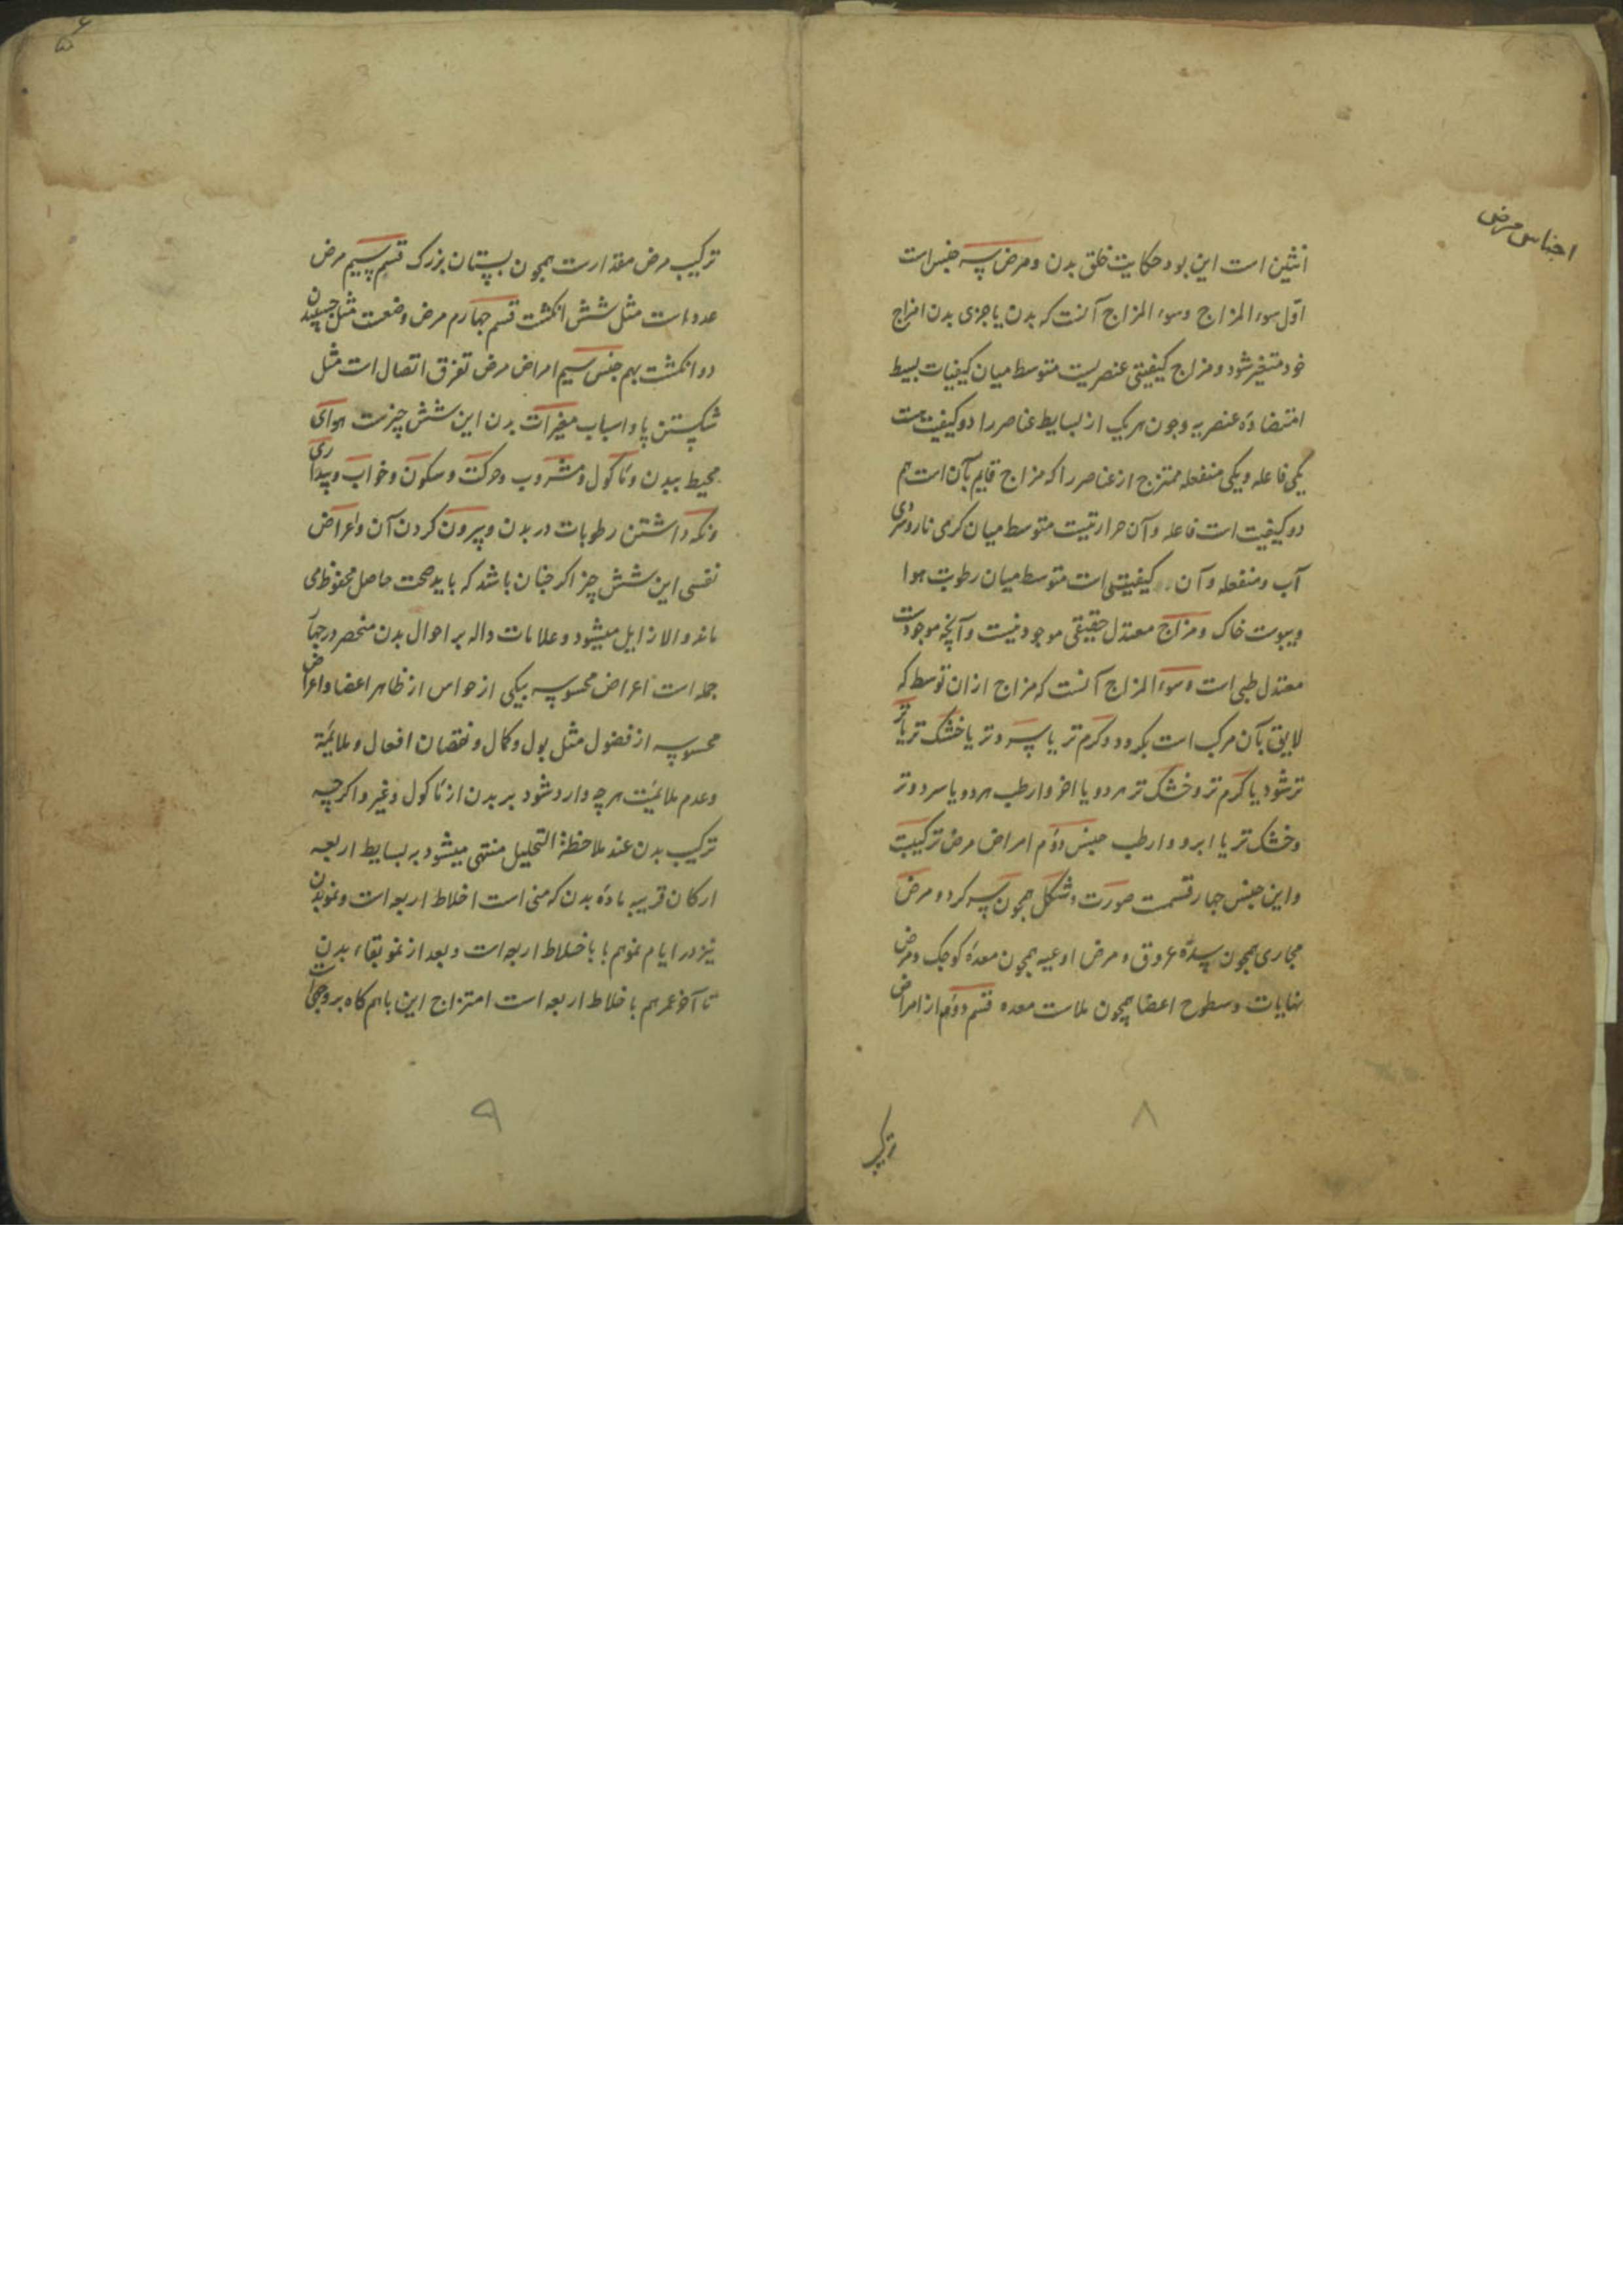 اجناس مرض
انثیین است این بود حکایت خلق بدن و مرض سه جنس است
اول سوء المزاج و سوء المزاج آنست که بدن یا جزی بدن از مزاج
خود متغیر شود و مزاج کیفیتی عنصریست متوسط میان کیفیات بسیط
متضاده عنصریه و چون هر یک از بسایط عناصر را دو کیفیت هست
یکی فاعله و یکی منفعله ممتزج از عناصر را که مزاج قایم بآن است هم
دو کیفیت است فاعله و آن حرارتیست متوسط میان کرمی نار و سردی
آب و منفعله و آن کیفیتی است متوسط میان رطوبت هوا
و یبوست خاک و مزاج معتدل حقیقی موجود نیست و آنچه موجودست
معتدل طبی است و سوء المزاج آنست که مزاج ازان توسط که
لایق بآن مرکب است بکردد و کرم تر یا سرد تر یا خشک تر یا تر
تر شود یا کرم تر و خشک تر هر دو یا احر و ارطب هر دو یا سرد و تر
و خشک تر یا ابرد و ارطب جنس دوم امراض مرض ترکیبت
و این جنس چهار قسمت صورت و شکل همچون سر کرد و مرض
مجاری همچون سده عروق و مرض اوعیه همچون معده کوچک و مرض
نهایات و سطوح اعضا همچون ملاست معده قسم دوم از امراض
ترکیب
۸
ترکیب مرض مقدارست همچون پستان بزرک قسم سیم مرض
عددست مثل شش انکشت قسم چهارم مرض وضعست مثل چسپیدن
دو انکشت بهم جنس سیم امراض مرض تفرق اتصال است مثل
شکستن پا و اسباب مغیرات بدن این شش چیزست هوای
محیط ببدن و ماکول و مشروب و حرکت و سکون و خواب و بیداری
و نکه داشتن رطوبات در بدن و بیرون کردن آن و اعراض
نفسی این شش چیز اکر چنان باشد که باید صحت حاصل محفوظ می
ماند و الا زایل میشود و علامات داله بر احوال بدن منحصر در چهار
جمله است اعراض محسوسه بیکی از حواس از ظاهر اعضا و اعراض
محسوسه از فضول مثل بول و کمال و نقصان افعال و ملایمة
و عدم ملایمت هر چه وارد شود بر بدن از ماکول و غیره اکرچه
ترکیب بدن عند ملاحظة التحلیل منتهی میشود بر بسایط اربعه
ارکان قریبه ماده بدن که منی است اخلاط اربعه است و نمو بدن
نیز در ایام نمو هم با باخلاط اربعه است و بعد از نمو بقاء بدن
تا آخر عمر هم باخلاط اربعه است امتزاج این باهم کاه بر وجهی است
۹